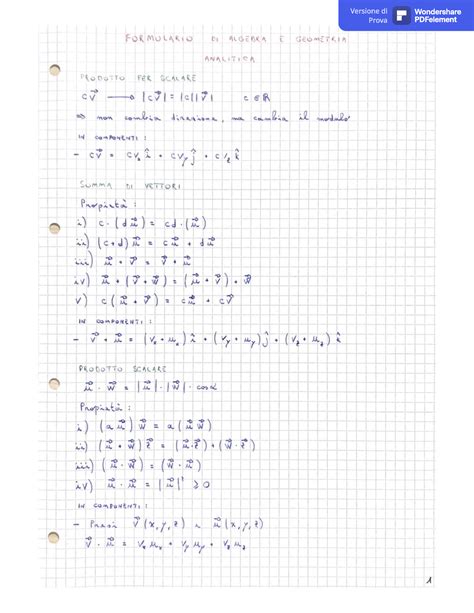 Versione di Prova
Wondershare PDFelement
FORMULARIO DI ALGEBRA E GEOMETRIA
ANALITICA
PRODOTTO PER SCALARE
c v⃗ ⟶ |c v⃗| = |c||v⃗| c ∈ ℝ
⇒ non cambia direzione, ma cambia il modulo
IN COMPONENTI :
- c v⃗ = c vₓ î + c v_y ĵ + c v_z k̂
SOMMA DI VETTORI
Proprietà :
i) c · (d u⃗) = cd · (u⃗)
ii) (c + d) u⃗ = c u⃗ + d u⃗
iii) u⃗ + v⃗ = v⃗ + u⃗
iv) u⃗ + (v⃗ + w⃗) = (u⃗ + v⃗) + w⃗
v) c (u⃗ + v⃗) = c u⃗ + c v⃗
IN COMPONENTI :
- v⃗ + u⃗ = (vₓ + uₓ) î + (v_y + u_y) ĵ + (v_z + u_z) k̂
PRODOTTO SCALARE
u⃗ · w⃗ = |u⃗| · |w⃗| · cosα
Proprietà :
i) (a u⃗) w⃗ = a (u⃗ w⃗)
ii) (u⃗ + w⃗) z⃗ = (u⃗ · z⃗) + (w⃗ · z⃗)
iii) (u⃗ · w⃗) = (w⃗ · u⃗)
iv) u⃗ · u⃗ = |u⃗|² ≥ 0
IN COMPONENTI :
- Presi v⃗ (x, y, z) e u⃗ (x, y, z)
v⃗ · u⃗ = vₓ uₓ + v_y u_y + v_z u_z
1